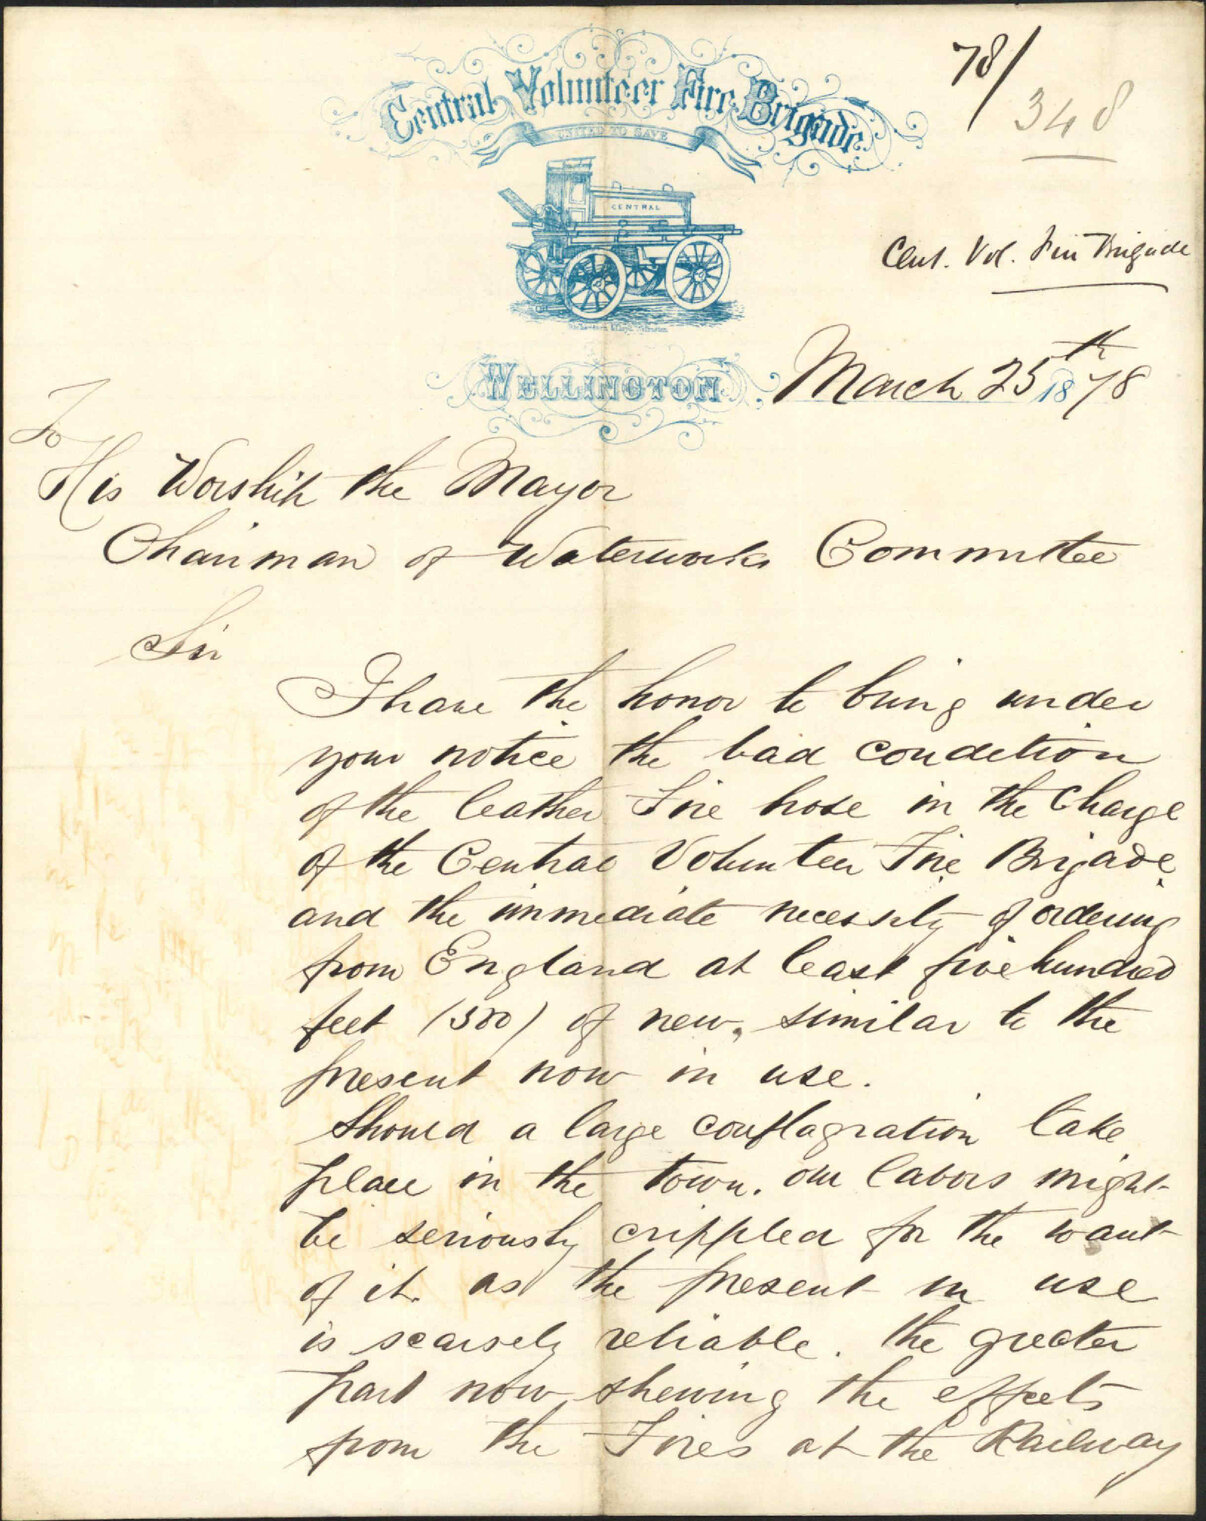 78/
348
Central Volunteer Fire Brigade
UNITED TO SAVE
CENTRAL
Cent. Vol. Fire Brigade
WELLINGTON March 25th 1878
To
His Worship the Mayor
Chairman of Waterworks Committee
Sir
I have the honor to bring under
your notice the bad condetion
of the leather Fire hose in the Charge
of the Central Volunteer Fire Brigade
and the immediate necessity of ordering
from England at least five hundred
feet (500) of new, similar to the
present now in use.
Should a large conflagration take
place in the town. our labors might
be seriously crippled for the want
of it. as the present in use
is scarsely reliable. the greater
part now shewing the effects
from the Fires at the Railway